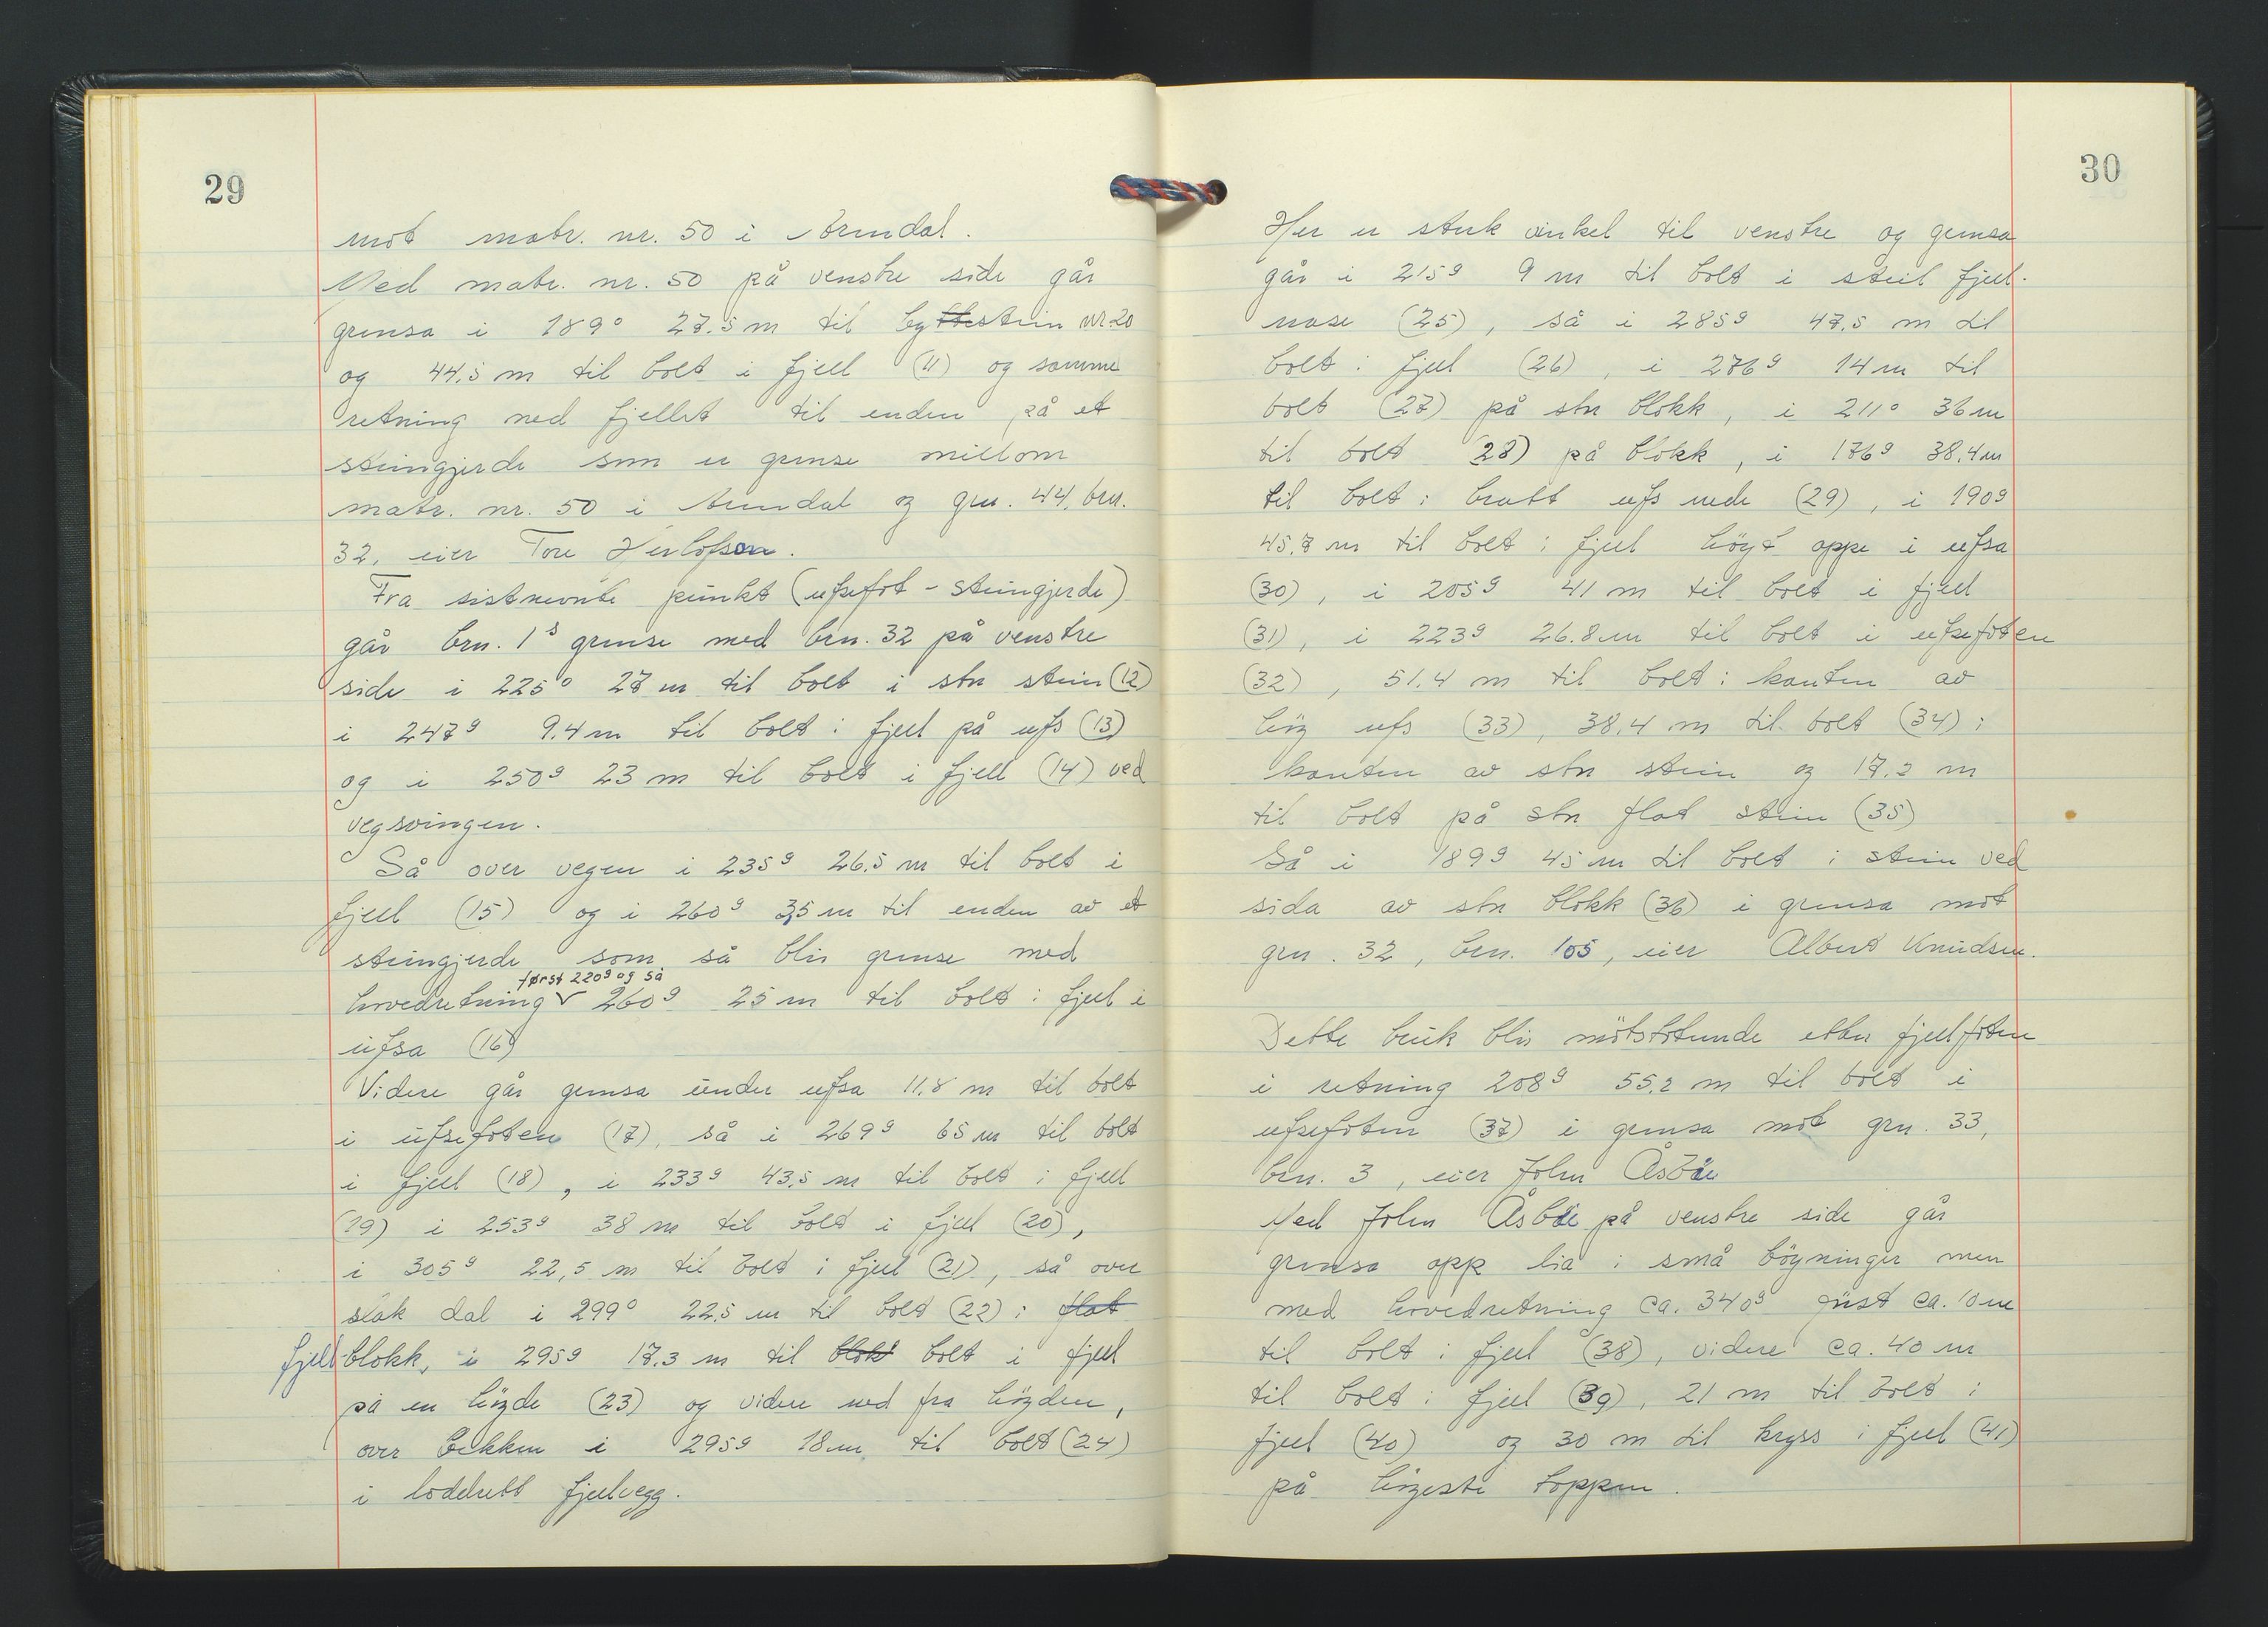 29
mot matr. nr. 50 i Arendal.
Med matr. nr. 50 på venstre side går
grensa i 189° 27.5 m til byttestein nr. 20
og 44.5 m til bolt i fjell (11) og samme
retning ned fjellet til enden på et
steingjerde som er grense millom
matr. nr. 50 i Arendal og gnr. 44, brn.
32, eier Tore Herlofson.
Fra sistnevnte punkt (ufsefot - steingjerde)
går brn. 1s grense med brn. 32 på venstre
side i 225° 27 m til bolt i stor stein (12)
i 247g 9.4 m til bolt i fjell på ufs (13)
og i 250g 23 m til bolt i fjell (14) ved
vegsvingen.
Så over vegen i 235g 26.5 m til bolt i
fjell (15) og i 260g 3,5 m til enden av et
steingjerde som så blir grense med
først 220g og så
hovedretning 260g 25 m til bolt i fjell i
ufsa (16)
Videre går grensa under ufsa 11.8 m til bolt
i ufsefoten (17), så i 269g 65 m til bolt
i fjell (18), i 233g 43.5 m til bolt i fjell
(19) i 253g 38 m til bolt i fjell (20),
i 305g 22,5 m til bolt i fjell (21), så over
slak dal i 299° 22.5 m til bolt (22) i flat
fjellblokk, i 295g 17.3 m til blokk bolt i fjell
på en høgde (23) og videre ned fra høgden,
over bekken i 295g 18 m til bolt (24)
i loddrett fjellvegg.
30
Her er sterk vinkel til venstre og grensa
går i 215g 9 m til bolt i steil fjell-
nase (25), så i 285g 47.5 m til
bolt i fjell (26), i 276g 14 m til
bolt (27) på stor blokk, i 211° 36 m
til bolt (28) på blokk, i 176g 38.4 m
til bolt i bratt ufs nede (29), i 190g
45.7 m til bolt i fjell høgt oppe i ufsa
(30), i 205g 41 m til bolt i fjell
(31), i 223g 26.8 m til bolt i ufsefoten
(32), 51.4 m til bolt i kanten av
høg ufs (33), 38.4 m til bolt (34) i
kanten av stor stein og 17.2 m
til bolt på stor flat stein (35)
Så i 189g 45 m til bolt i stein ved
sida av stor blokk (36) i grensa mot
gnr. 32, brn. 105, eier Albert Knudsen.
Dette bruk blir møtstøtende etter fjellfoten
i retning 208g 55.2 m til bolt i
ufsefoten (37) i grensa mot gnr. 33,
brn. 3, eier John Åsbie
Med John Åsbie på venstre side går
grensa opp lia i små bøgninger men
med hovedretning ca. 340g først ca. 10 m
til bolt i fjell (38), videre ca. 40 m
til bolt i fjell (39), 21 m til bolt i
fjell (40) og 30 m til kryss i fjell (41)
på høgeste toppen.